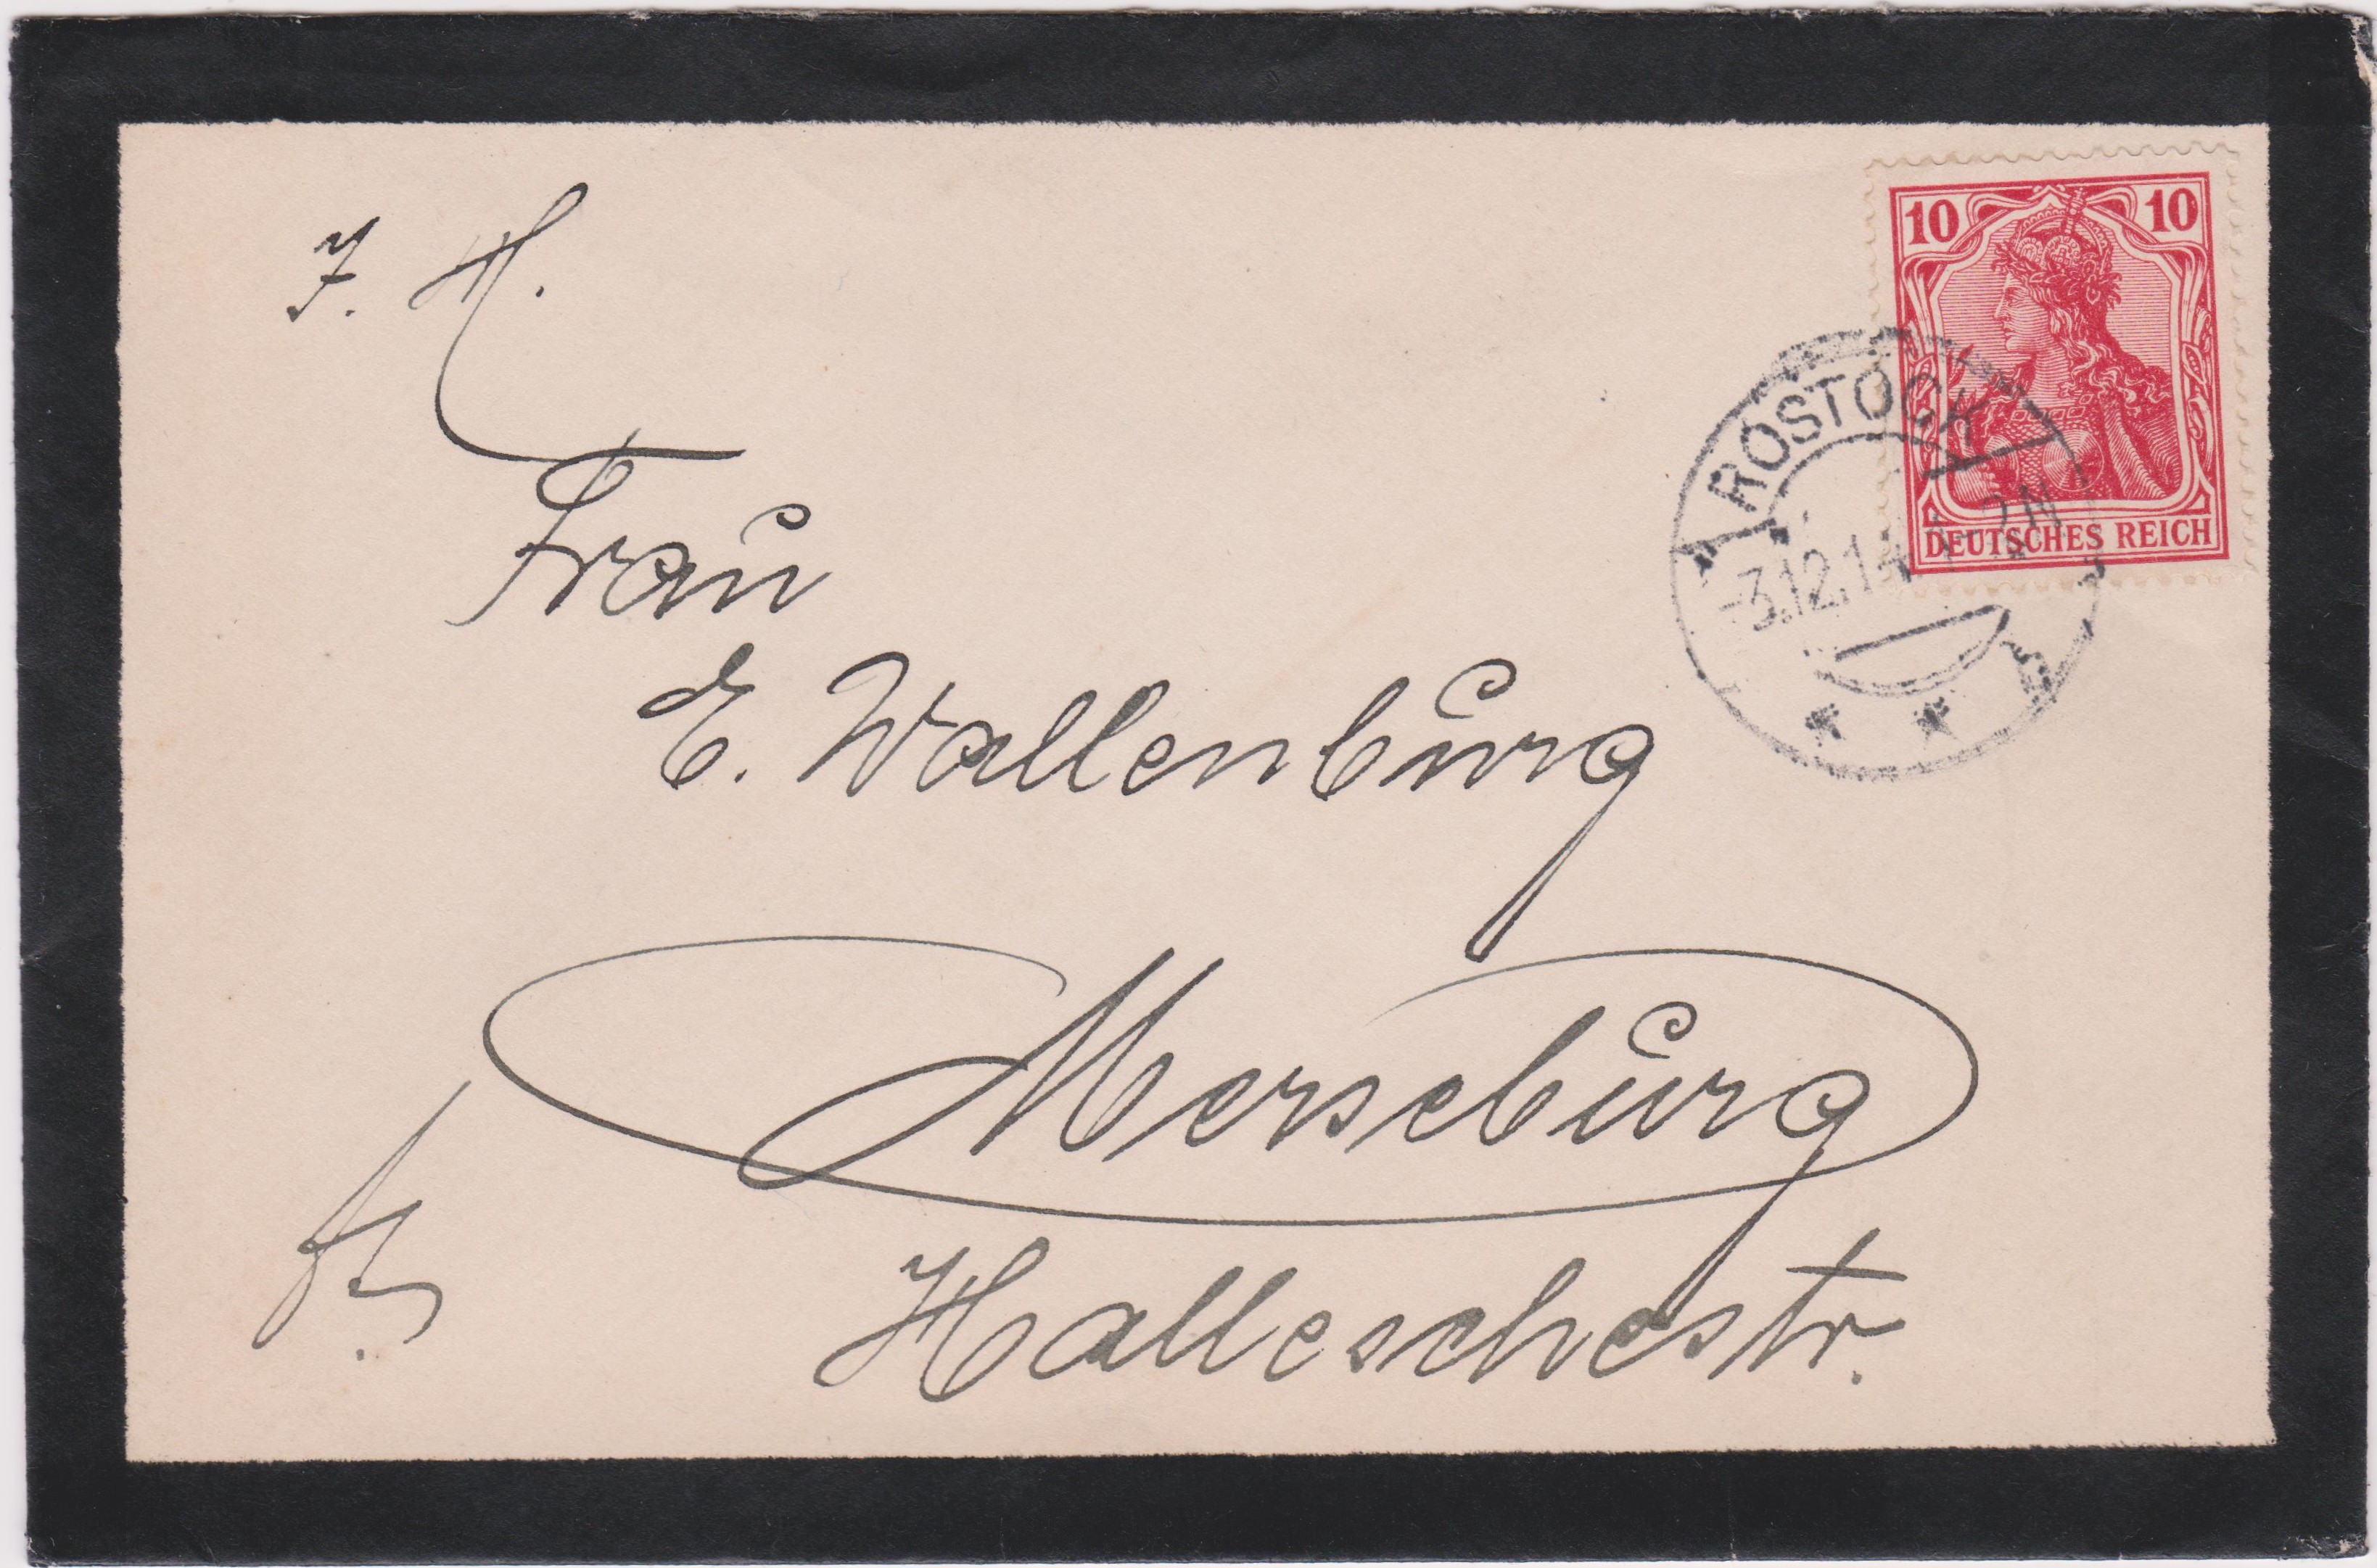 10 10
DEUTSCHES REICH
ROSTOCK
-3.12.14
J. H.
Frau
E. Wallenburg
Merseburg
Halleschestr.